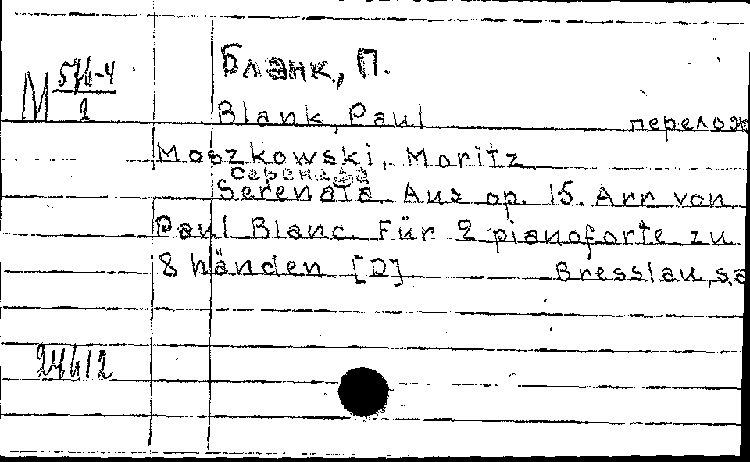 Бланк, П.
М 574-4
Blank, Paul перелож
Moszkowski, Moritz
Серенада
Serenata. Aus op. 15. Arr von
Paul Blanc. Für 2 pianoforte zu
8 händen [D] Bresslau, sa